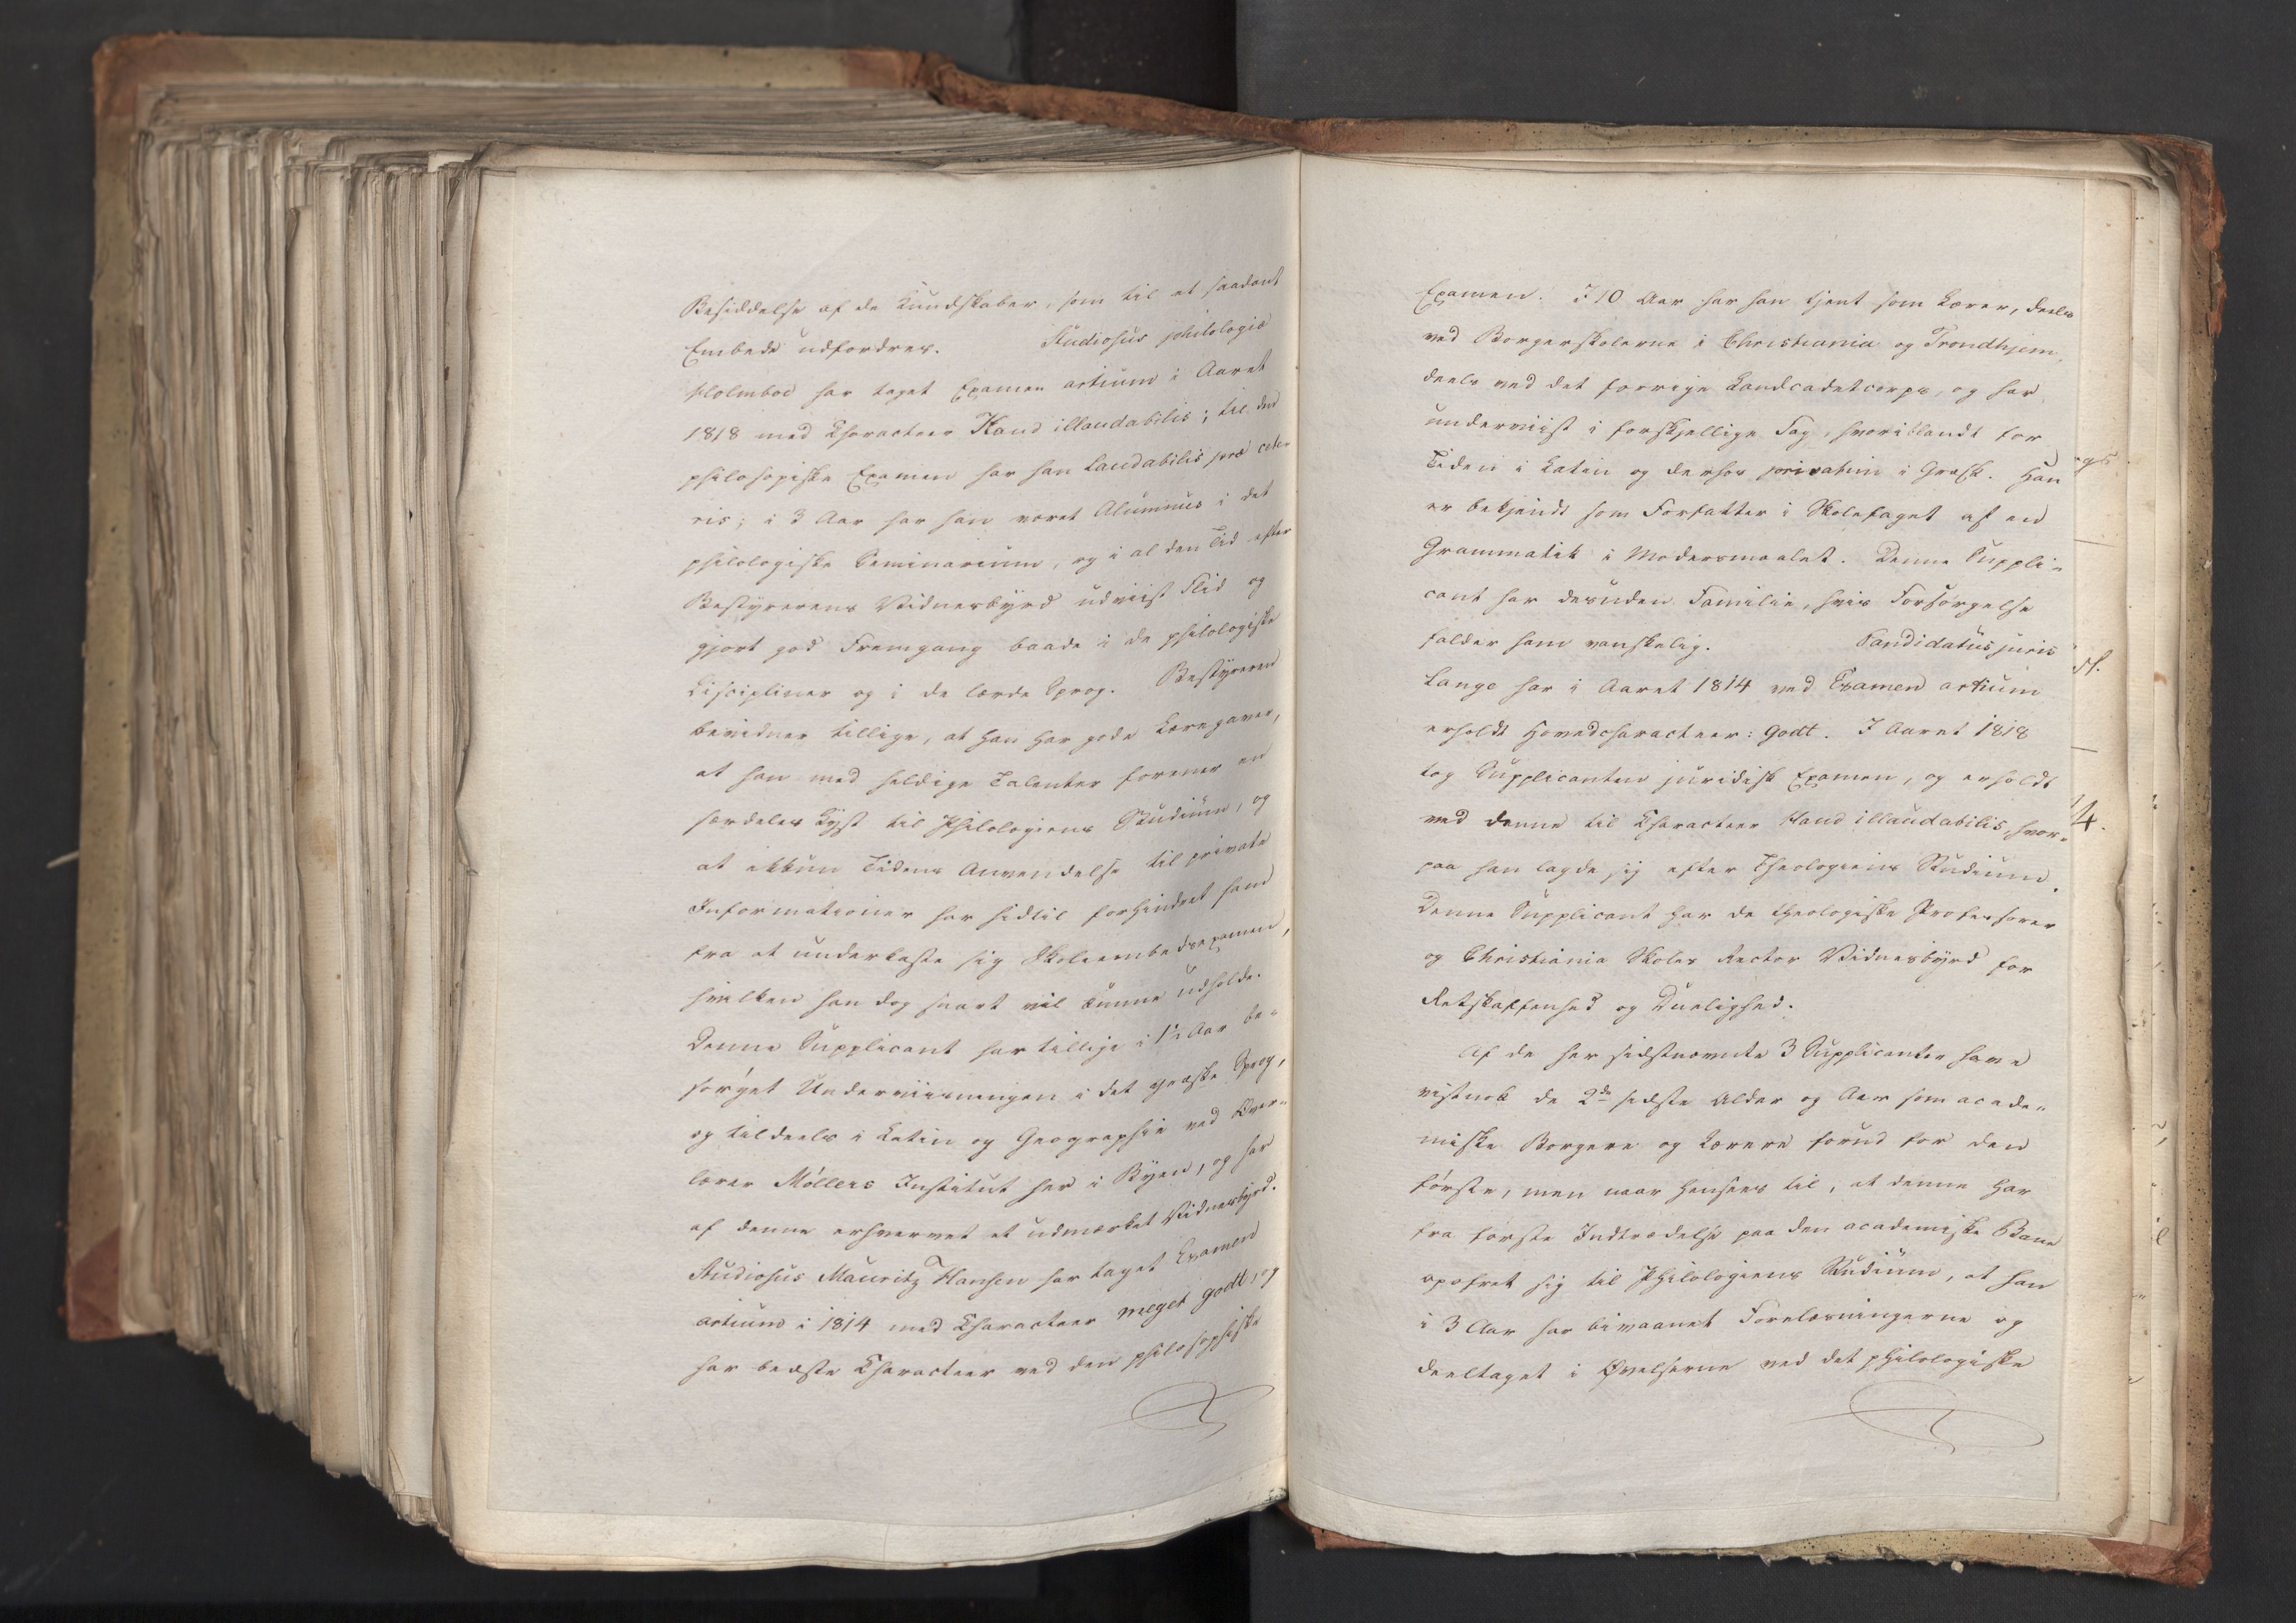 Besiddelse af de Kundskaber, som til et saadant
Embede udfordres. Studiosus philologiæ
Holmboe har taget Examen artium i Aaret
1818 med Characteer Haud illaudabilis; til den
philosopiske Examen har han Laudabilis præ cete-
ris; i 3 Aar har han været Alumnus i det
philologiske Seminarium, og i al den Tid efter
Bestyrerens Vidnesbyrd udviist Flid og
gjort god Fremgang baade i de philologiske
Discipliner og i de lærde Sprog. Bestyreren
bevidner tillige, at han har gode Læregaver,
at han med heldige Talenter forener en
særdeles Lyst til Philologiens Studium, og
at ikkun Tidens Anvendelse til private
Informationer har hidtil forhindret ham
fra at underkaste sig Skoleembedsexamen,
hvilken han dog snart vil kunne udholde.
Denne Supplicant har tillige i 1½ Aar be-
sørget Underviisningen i det græske Sprog,
og tildeels i Latin og Geographie ved Over-
lærer Møllers Institut her i Byen, og har
af denne erhvervet et udmærket Vidnesbyrd.
Studiosus Mauritz Hansen har taget Examen
artium i 1814 med Characteer meget godt, og
har bedste Characteer ved den philosophiske
Examen. I 10 Aar har han tjent som Lærer, deels
ved Borgerskolerne i Christiania og Trondhjem,
deels ved det forrige Landcadetcorps, og har
underviist i forskjellige Fag, hvoriblandt for
Tiden i Latin og derhos privatim i Græsk. Han
er bekjendt som Forfatter i Skolefaget af en
Grammatik i Modersmaalet. Denne Suppli-
cant har desuden Familie, hvis Forsørgelse
falder ham vanskelig. Candidatus juris
Lange har i Aaret 1814 ved Examen artium
erholdt Hovedcharacteer: Godt. I Aaret 1818
tog Supplicanten juridisk Examen, og erholdt
ved denne til Characteer Haud illaudabilis, hvor-
paa han lagde sig efter Theologiens Studium.
Denne Supplicant har de theologiske Professorer
og Christiania Skoles Rector Vidnesbyrd for
Retskaffenhed og Duelighed.
Af de her sidstnævnte 3 Supplicanter have
vistnok de 2de sidste Alder og Aar som acade-
miske Borgere og Lærere forud for den
første, men naar hensees til, at denne har
fra første Indtrædelse paa den academiske Bane
opofret sig til Philologiens Studium, at han
i 3 Aar har bivaanet Forelæsningerne og
deeltaget i Øvelserne ved det philologiske